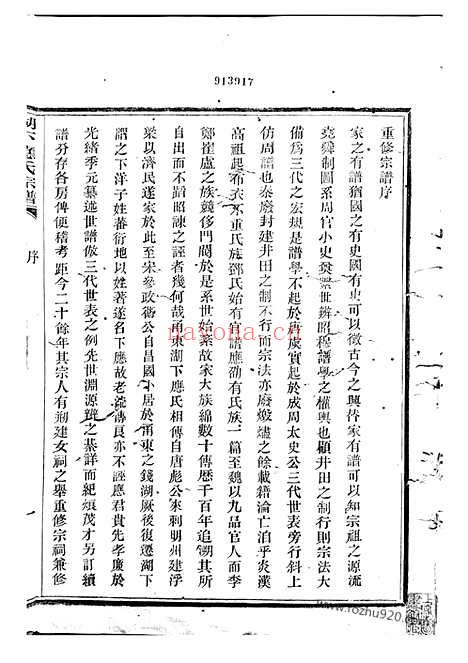 913917
重修宗譜序
家之有譜猶國之有史國有史可以徵古今之興替家有譜可以知宗祖之源流
堯舜制圖系周官小史奠繫世辨昭穆譜學之權輿也顧井田之制行則宗法大
備爲三代之宏規是譜學不起於唐虞實起於成周太史公三代世表旁行斜上
仿周譜也泰廢封建井田之制不行而宗法亦廢燬燼之餘載籍淪亡泊乎炎漢
高祖起布衣不重氏族鄧氏始有官譜應劭有氏族一篇至魏以九品官人而李
鄭崔盧之族競侈門閥於是系世始系故家大族綿數十傳歷千百年追溯其所
自出而不蹈昭諫之誣者幾何哉湖下應氏相傳自唐彪公來刺明州建浮
梁以濟民遂家於此至宋參政翛公自昌國卜居於甬東之錢湖厥後復遷湖下
謂之下洋子姓蕃衍地以姓著遂名下應故老
傳良亦不誣應君貴先孝廉於
光緒季元纂述世譜倣三代世表之例先世淵源
之綦詳而紀
茂才另訂續
譜分存各房俾便稽考距今二十餘年其宗人有剏建女祠之舉重修宗祠兼修
應氏宗譜
序
nayona.cn
www.rozhu920.com